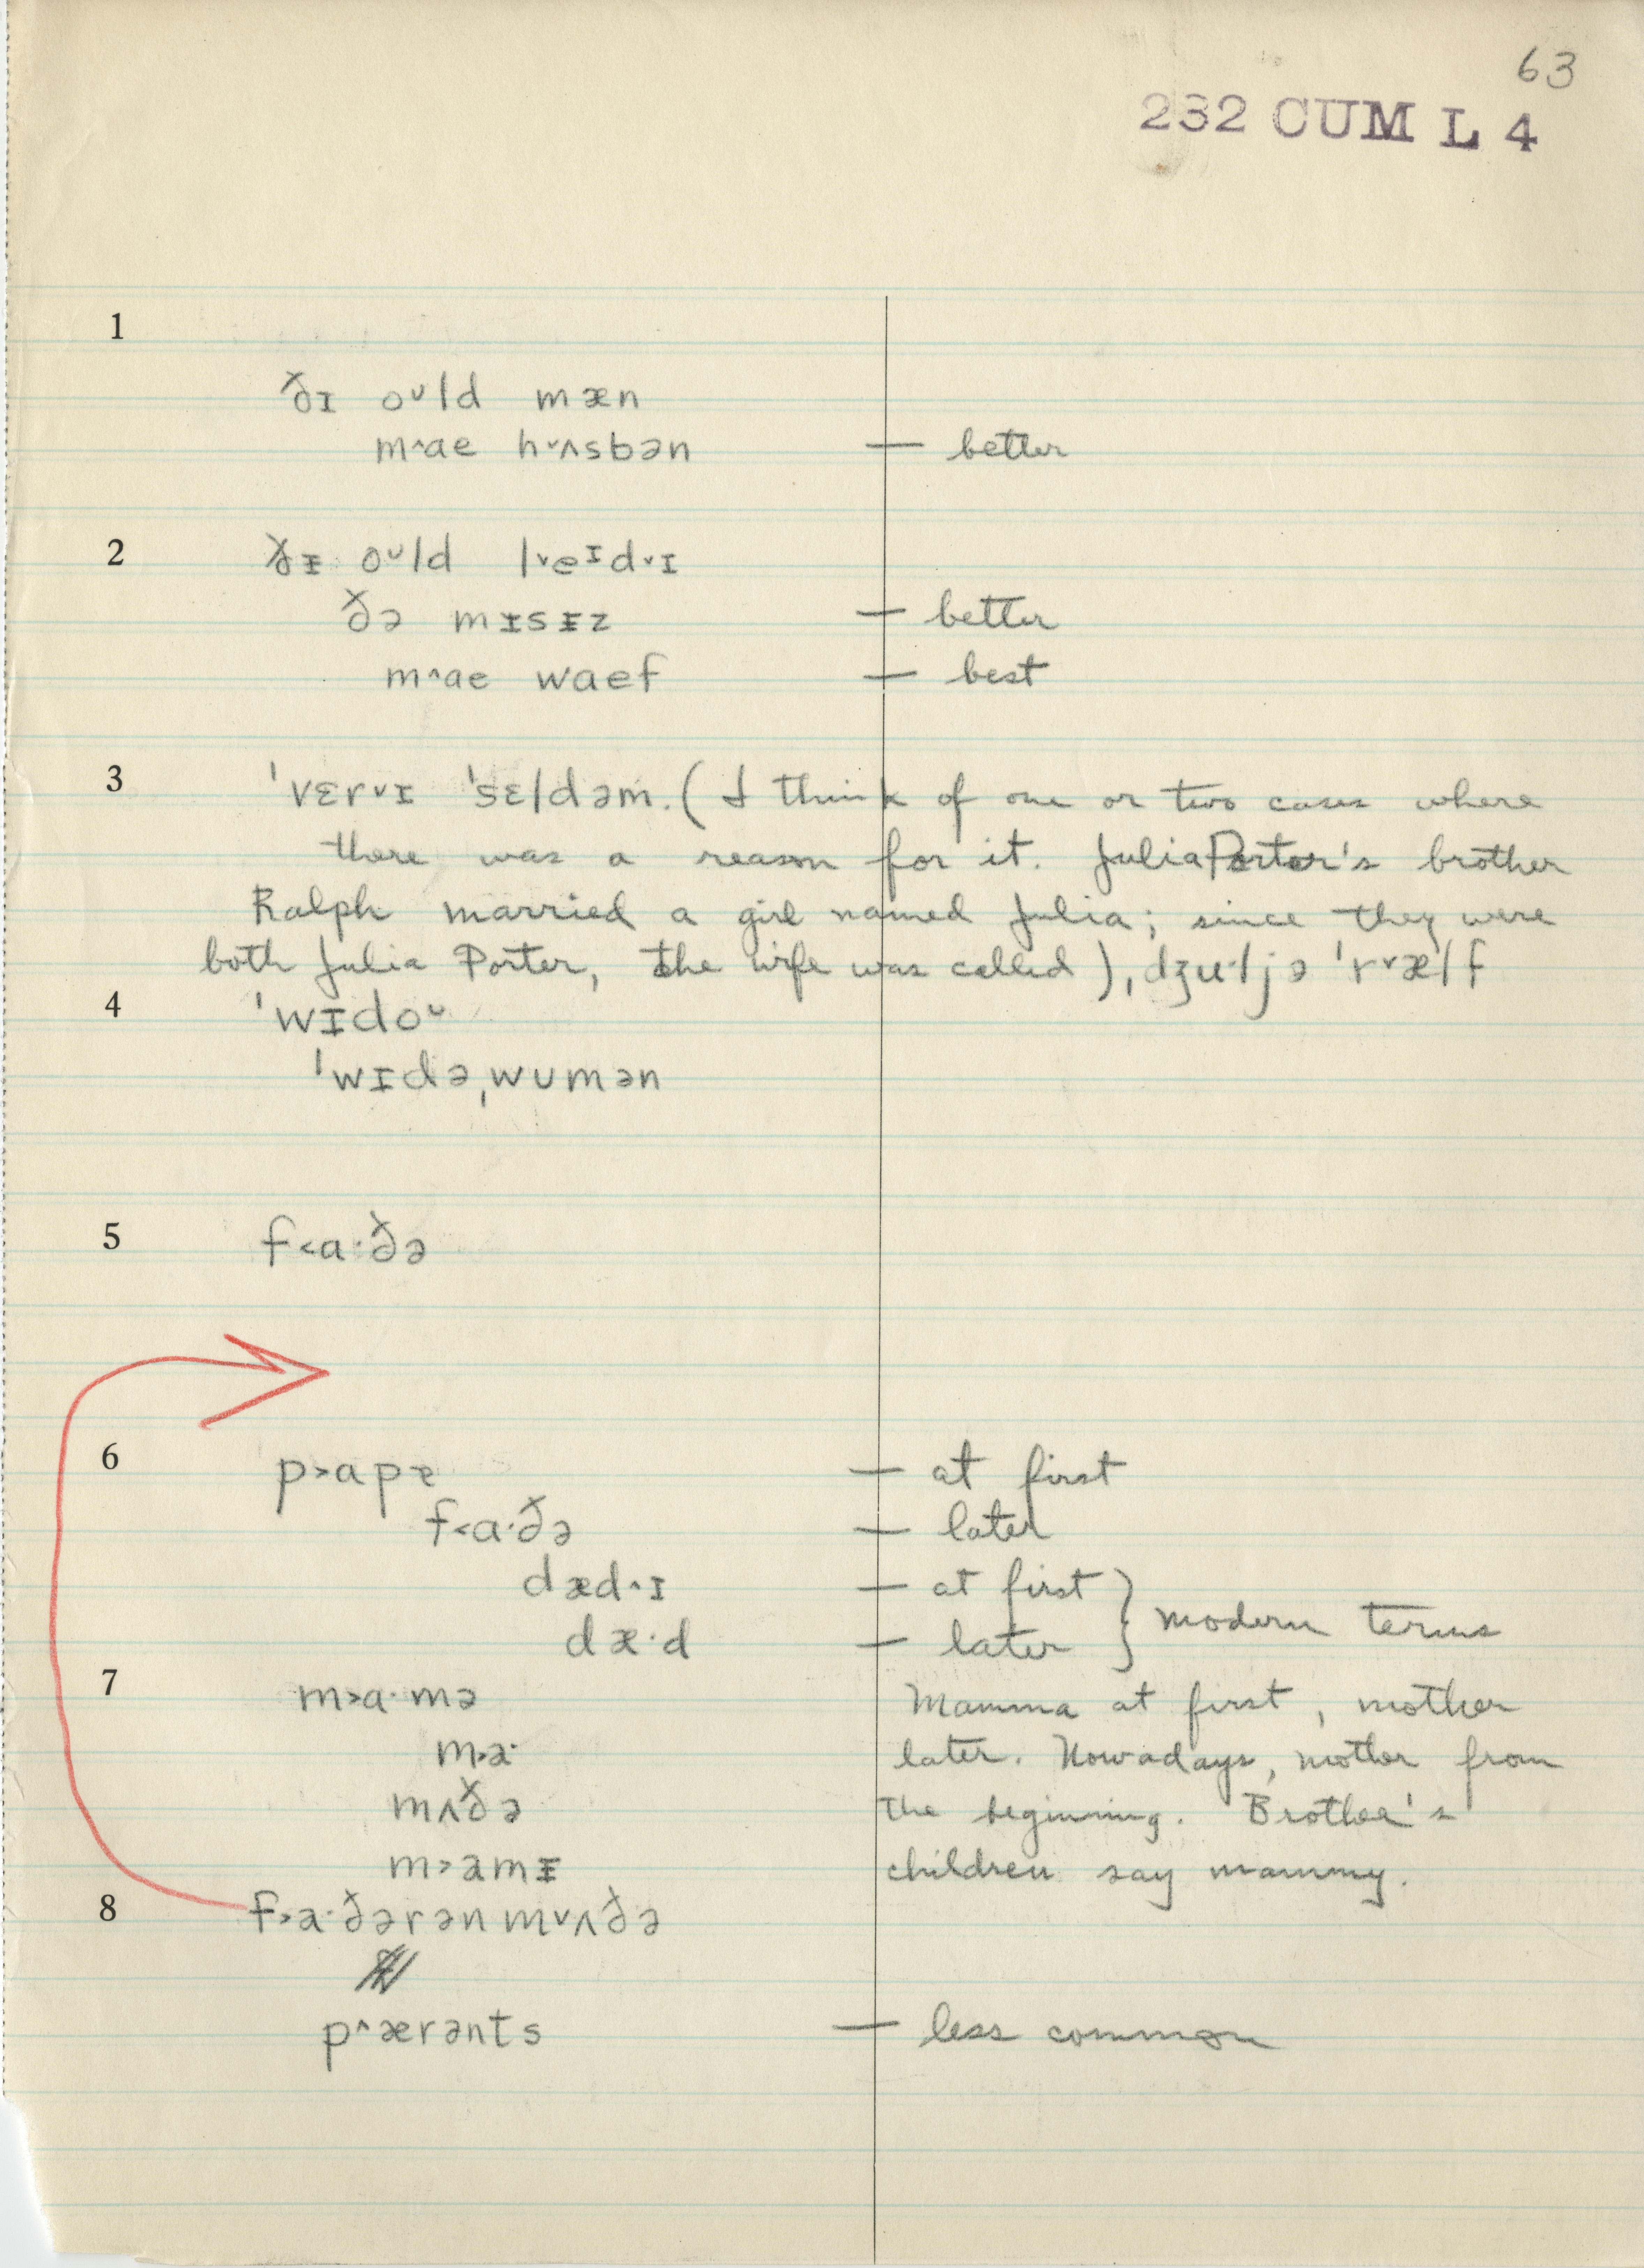 63
232 CUM L 4
1
ðɪ oᵘld mæn
m^ae h˅ʌsbən — better
2 ðɪ oᵘld l˅eᶦd˅ɪ
ðə mɪsɪz — better
m^ae waef — best
3 'vɛr˅ɪ 'sɛldəm. (I think of one or two cases where
there was a reason for it. Julia Porter's brother
Ralph married a girl named Julia; since they were
both Julia Porter, the wife was called), dʒu·ljə 'r˅ælf
4 'wɪdoᵘ
'wɪdə,wumən
5 f<a·ðə
6 p>apɐ — at first
f<a·ðə — later
dæd^ɪ — at first
dæ·d — later } modern terms
7 m>a·mə Mamma at first, mother
m>a· later. Nowadays, mother from
mʌðə the beginning. Brother's
m>amɪ children say mammy.
8 f>a·ðərən m˅ʌðə
p^ærənts — less common